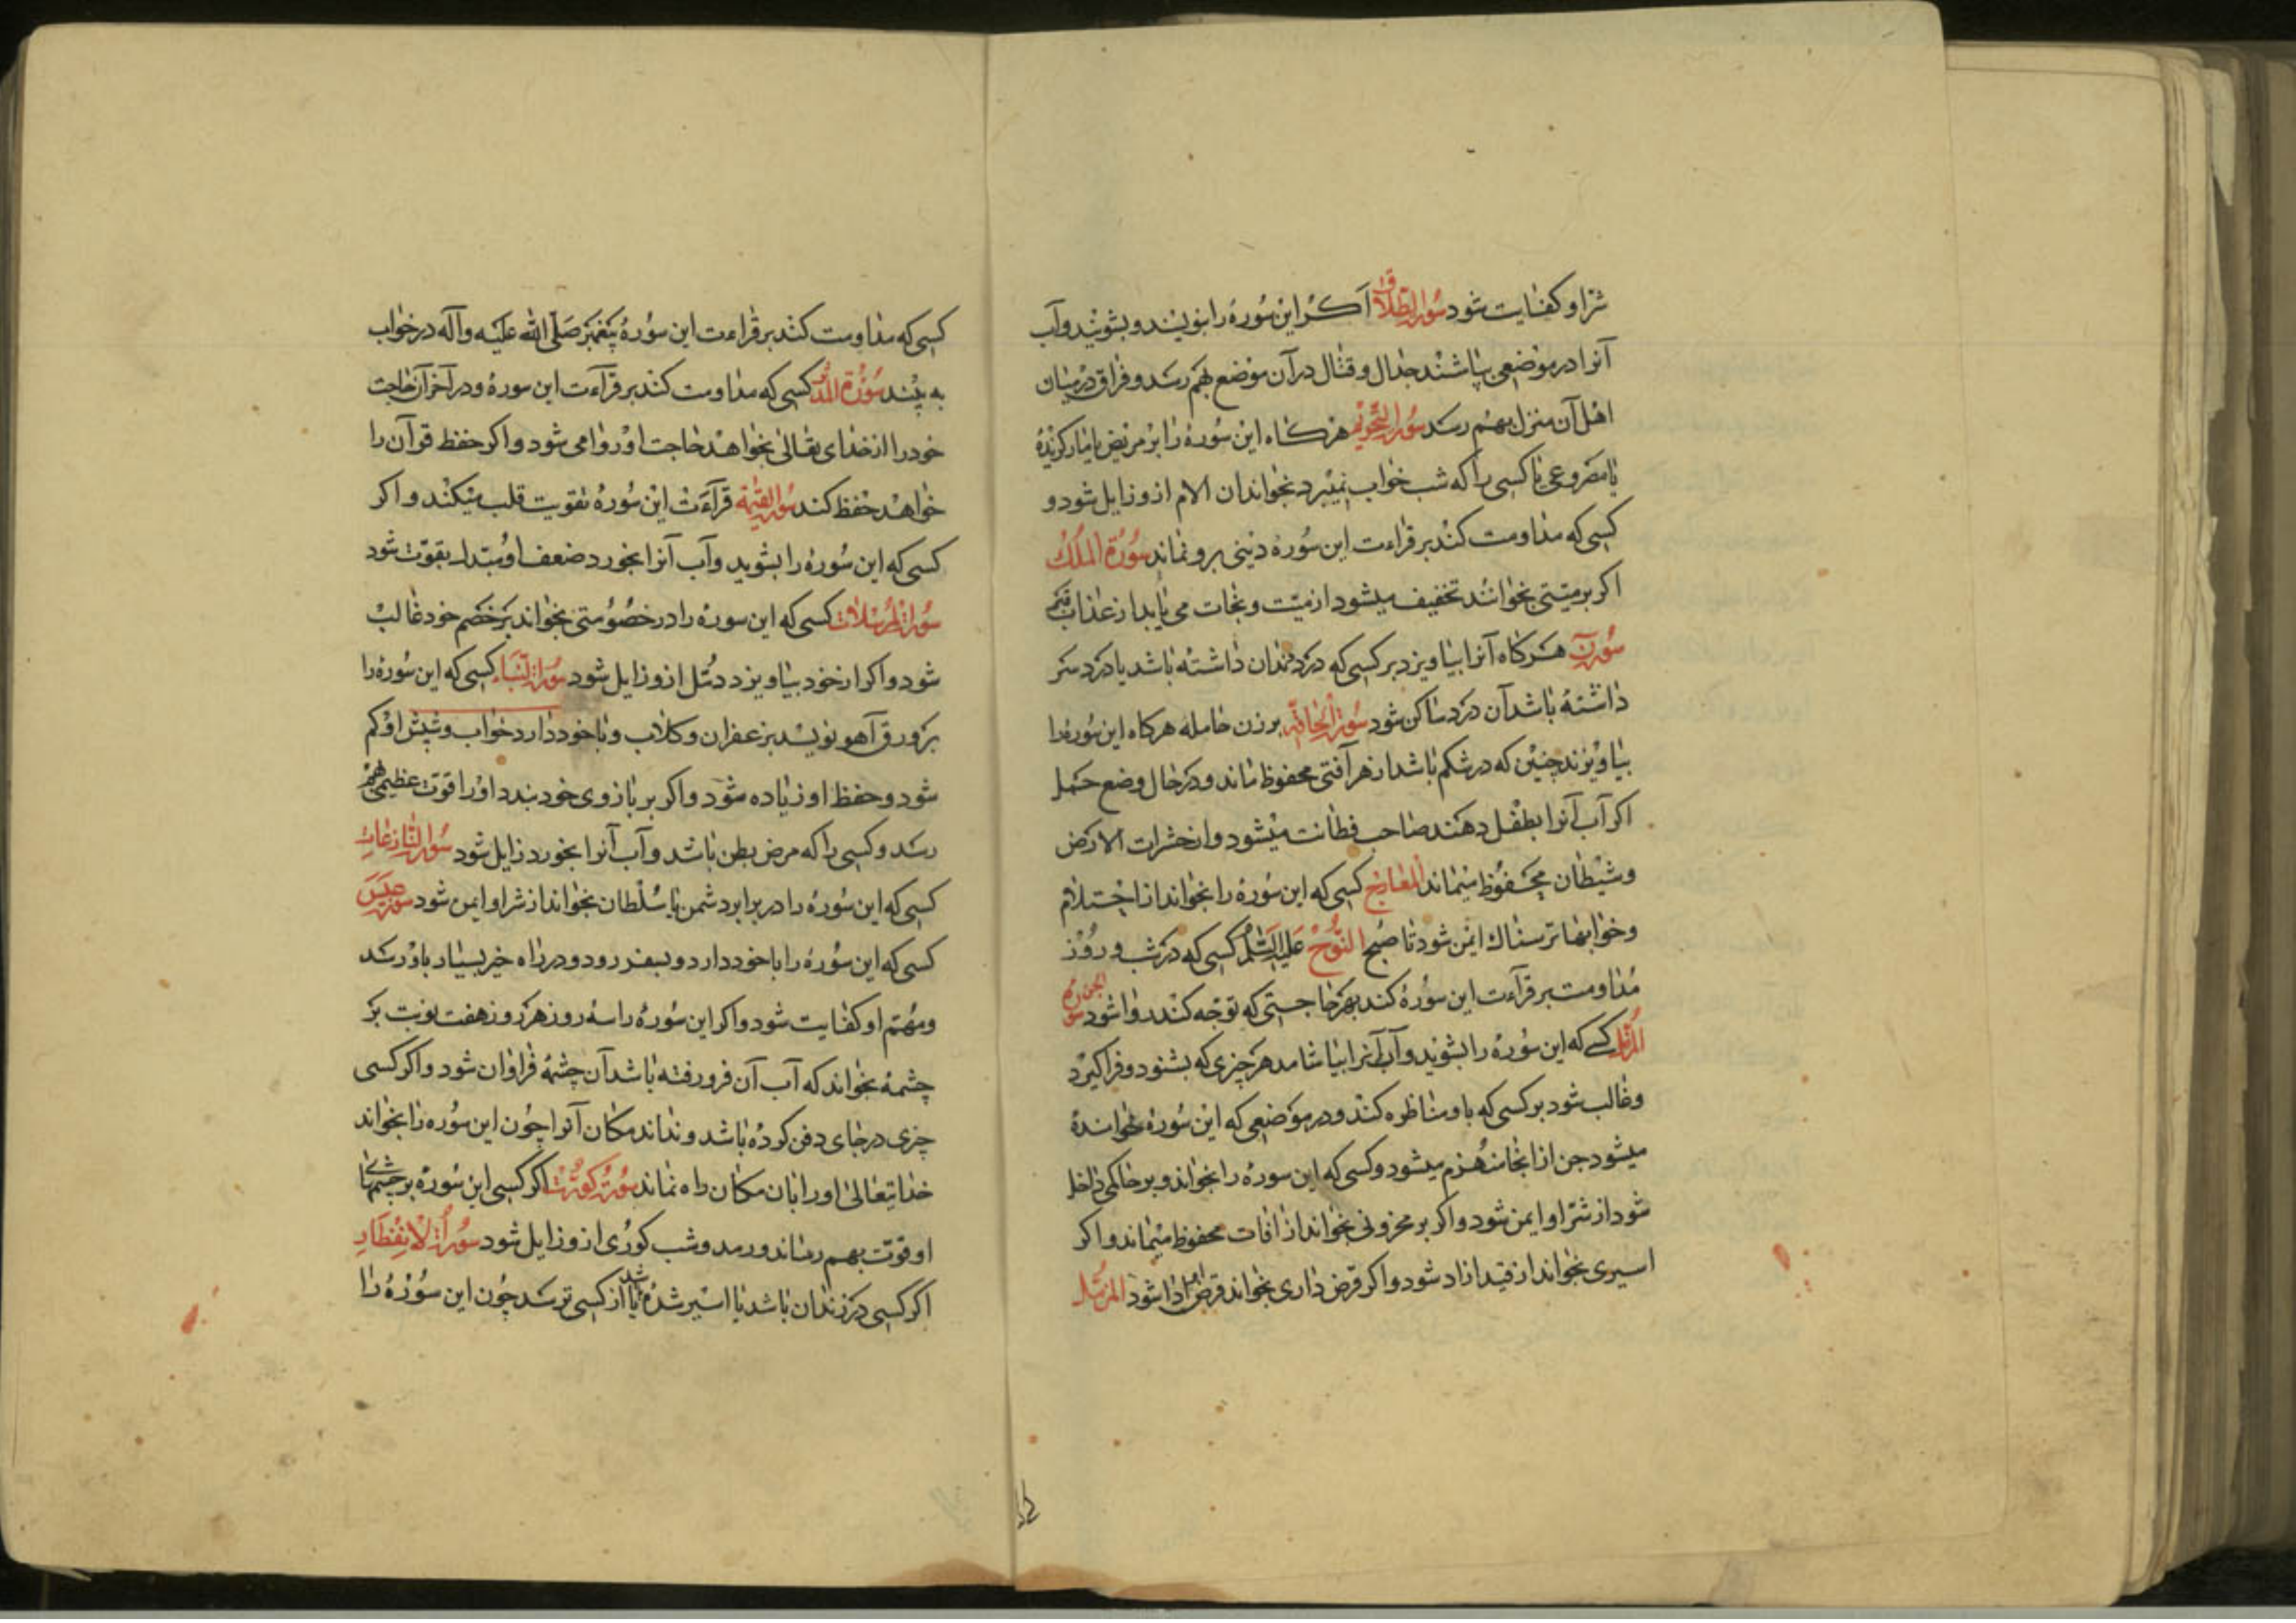 شر او کفایت شود سورة الطلاق اکر این سوره را بنویسند و بشویند و آب
آنرا در موضعی بپاشند جدال و قتال در آن موضع بهم رسد و فراق در میان
اهل آن منزل بهم رسد سورة التحریم هرکاه این سوره را بر مریض یا مار کزیده
یا مصروعی یا کسی را که شب خواب نمیبرد بخواند ان الام ازو زایل شود و
کسی که مداومت کند بر قراءت این سوره دینی برو نماند سورة الملک
اکر بر میتی بخوانند تخفیف میشود از میت و نجات می یابد از عذاب قبر
سورة ن هرکاه آنرا بیاویزد بر کسی که درد دندان داشته باشد یا درد سر
داشته باشد آن درد ساکن شود سورة الحاقه بر زن حامله هرکاه این سوره را
بیاویزند جنین که در شکم باشد از هر آفتی محفوظ ماند و در حال وضع حمل
اکر آب آنرا بطفل دهند صاحب فطانت میشود و از حشرات الارض
و شیطان محفوظ میماند المعارج کسی که این سوره را بخواند از احتلام
و خوابهاء ترسناک ایمن شود تا صبح النوح علیه السلم کسی که در شب و روز
مداومت بر قراءت این سوره کند بهر حاجتی که توجه کند روا شود سورة الجن
المزمل کسی که این سوره را بشوید و آب آنرا بیاشامد هر چیزی که بشنود فرا کیرد
و غالب شود بر کسی که با او مناظره کند و در موضعی که این سوره خوانده
میشود جن از انجا منهزم میشود و کسی که این سوره را بخواند و بر حاکمی داخل
شود از شر او ایمن شود و اکر بر محزونی بخواند از افات محفوظ میماند و اکر
اسیری بخواند از قید ازاد شود و اکر قرض داری بخواند قرض او ادا شود المزمل
کسی که مداومت کند بر قراءت این سوره پیغمبر صلی الله علیه و آله در خواب
به بیند سورة المدثر کسی که مداومت کند بر قرآءت این سوره و در آخر آن حاجت
خود را از خدای تعالی بخواهد حاجت او روا می شود و اکر حفظ قرآن را
خواهد حفظ کند سورة القیمة قرآءت این سوره تقویت قلب میکند و اکر
کسی که این سوره را بشوید و آب آنرا بخورد ضعف او مبتدل بقوت شود
سورة المرسلات کسی که این سوره را در خصومتی بخواند بر خصم خود غالب
شود و اکر از خود بیاویزد دمل ازو زایل شود سورة النباء کسی که این سوره را
بر ورق آهو نویسد بزعفران و کلاب و با خود دارد خواب و شپش او کم
شود و حفظ او زیاده شود و اکر بر بازوی خود بندد او را قوت عظیمی بهم
رسد و کسی را که مرض بطن باشد و آب آنرا بخورد زایل شود سورة النازعات
کسی که این سوره را در برابر دشمن یا سلطان بخواند از شر او ایمن شود سورة عبس
کسی که این سوره را با خود دارد و بسفر رود و در راه خیر بسیار باو رسد
و مهم او کفایت شود و اکر این سوره را سه روز هر روز هفت نوبت بر
چشمه بخواند که آب آن فرو رفته باشد آن چشمه فراوان شود و اکر کسی
چیزی در جای دفن کرده باشد و نداند مکان آنرا چون این سوره را بخواند
خدایتعالی او را بان مکان راه نماند سورة کورت اکر کسی این سوره بر چشمهای
او قوت بهم رساند و رمد و شب کوری ازو زایل شود سورة الانفطار
اکر کسی در زندان باشد یا اسیر شده باشد یا از کسی ترسد چون این سوره را